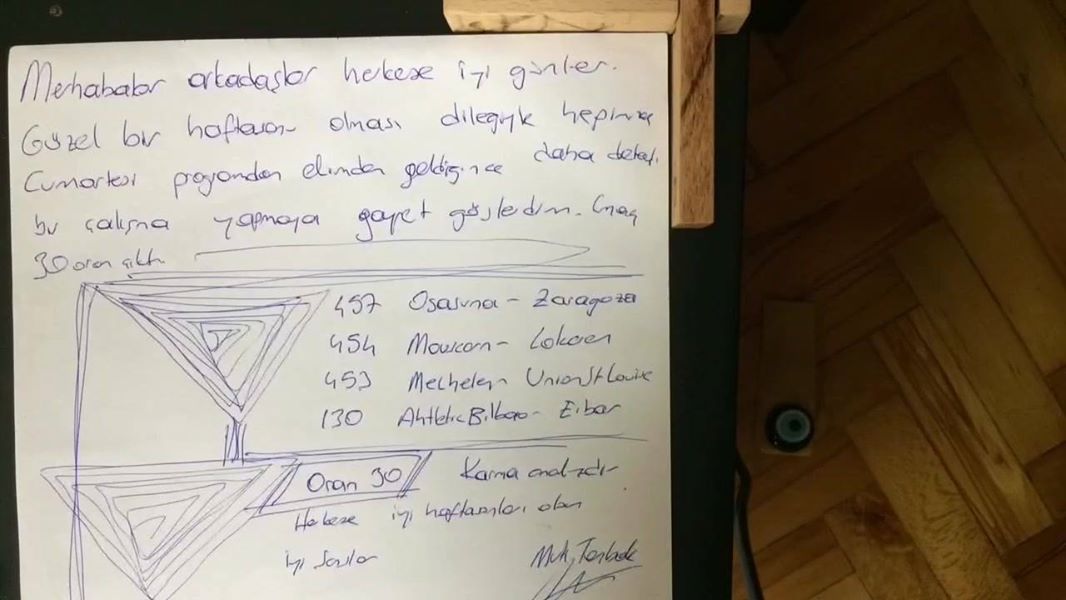 Merhabalar arkadaşlar herkese iyi günler.
Güzel bir haftasonu olması dileğiyle hepinize
Cumartesi programından elimden geldiğince daha detaylı
bir çalışma yapmaya gayret gösterdim.
30 oran çıktı.
457 Osasuna - Zaragoza
454 Mouscron - Lokeren
453 Mechelen - Union St Louise
130 Ahtletic Bilbao - Eibar
Oran 30
Herkese iyi haftasonları olsun
iyi